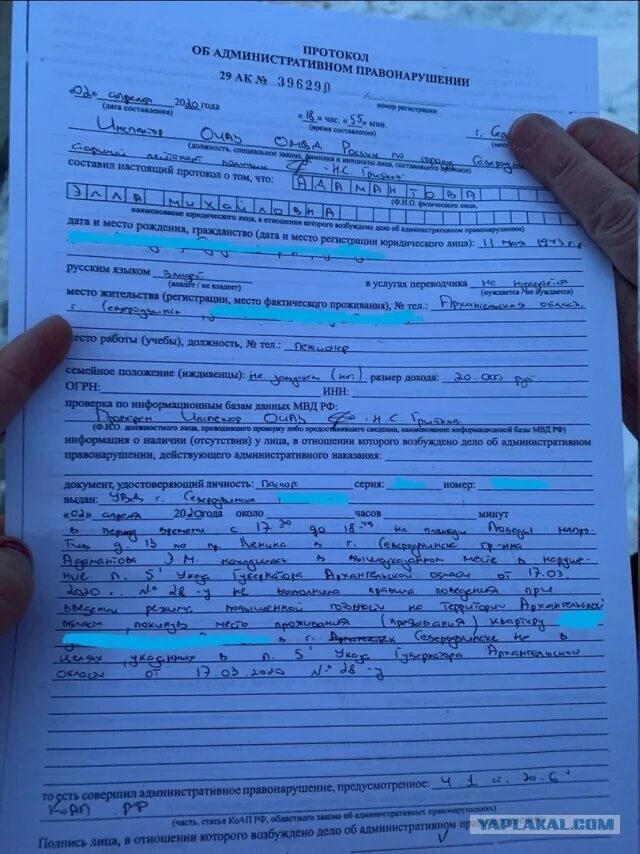 ПРОТОКОЛ
ОБ АДМИНИСТРАТИВНОМ ПРАВОНАРУШЕНИИ
29 АК № 396290
номер регистрации
«02» апреля 2020 года «18» час. «55» мин. г.
(дата составления) (время составления)
Инспектор ОИАЗ ОМВД России по городу
(должность, специальное звание, фамилия и инициалы лица, составившего протокол)
старший лейтенант полиции Н.С.
составил настоящий протокол о том, что: АДАМАНТОВА
(Ф.И.О. физического лица,
ЭЛЛА МИХАЙЛОВНА
наименование юридического лица, в отношении которого возбуждено дело об административном правонарушении)
дата и место рождения, гражданство (дата и место регистрации юридического лица): 11 мая 1943 г.р.
русским языком владеет в услугах переводчика не нуждается
(владеет / не владеет) (нуждается / не нуждается)
место жительства (регистрации, место фактического проживания), № тел.: Архангельская область,
г. Северодвинск
место работы (учебы), должность, № тел.: пенсионер
семейное положение (иждивенцы): не (нет) размер дохода: 20.000 руб.
ОГРН: ИНН:
проверка по информационным базам данных МВД РФ:
Инспектор ОИАЗ Н.С.
(Ф.И.О. должностного лица, проводившего проверку либо предоставившего сведения, наименование информационной базы МВД РФ)
информация о наличии (отсутствии) у лица, в отношении которого возбуждено дело об административном
правонарушении, действующего административного наказания:
документ, удостоверяющий личность: Паспорт серия: номер:
выдан: УВД г. Северодвинска
«02» апреля 2020 года около часов минут
в период времени с 17 30 до 18 на площади Победы напро-
тив д. 13 по пр. Ленина в г. Северодвинск гр-нка
Адамантова Э.М. находилась в вышеуказанном месте в наруше-
ние п. 5¹ Указа Губернатора Архангельской области от 17.03.
2020 № 28-у не выполнила правила поведения при
введении режима повышенной готовности на территории Архангельской
области, покинув место проживания (пребывания) квартиру
в г. Северодвинске не в
целях, указанных в п. 5¹ Указа Губернатора Архангельской
области от 17.03.2020 № 28-у
то есть совершил административное правонарушение, предусмотренное: ч 1 ст. 20.6¹
КоАП РФ
(часть, статья КоАП РФ, областного закона об административных правонарушениях)
Подпись лица, в отношении которого возбуждено дело об административном правонарушении
YAPLAKAL.COM